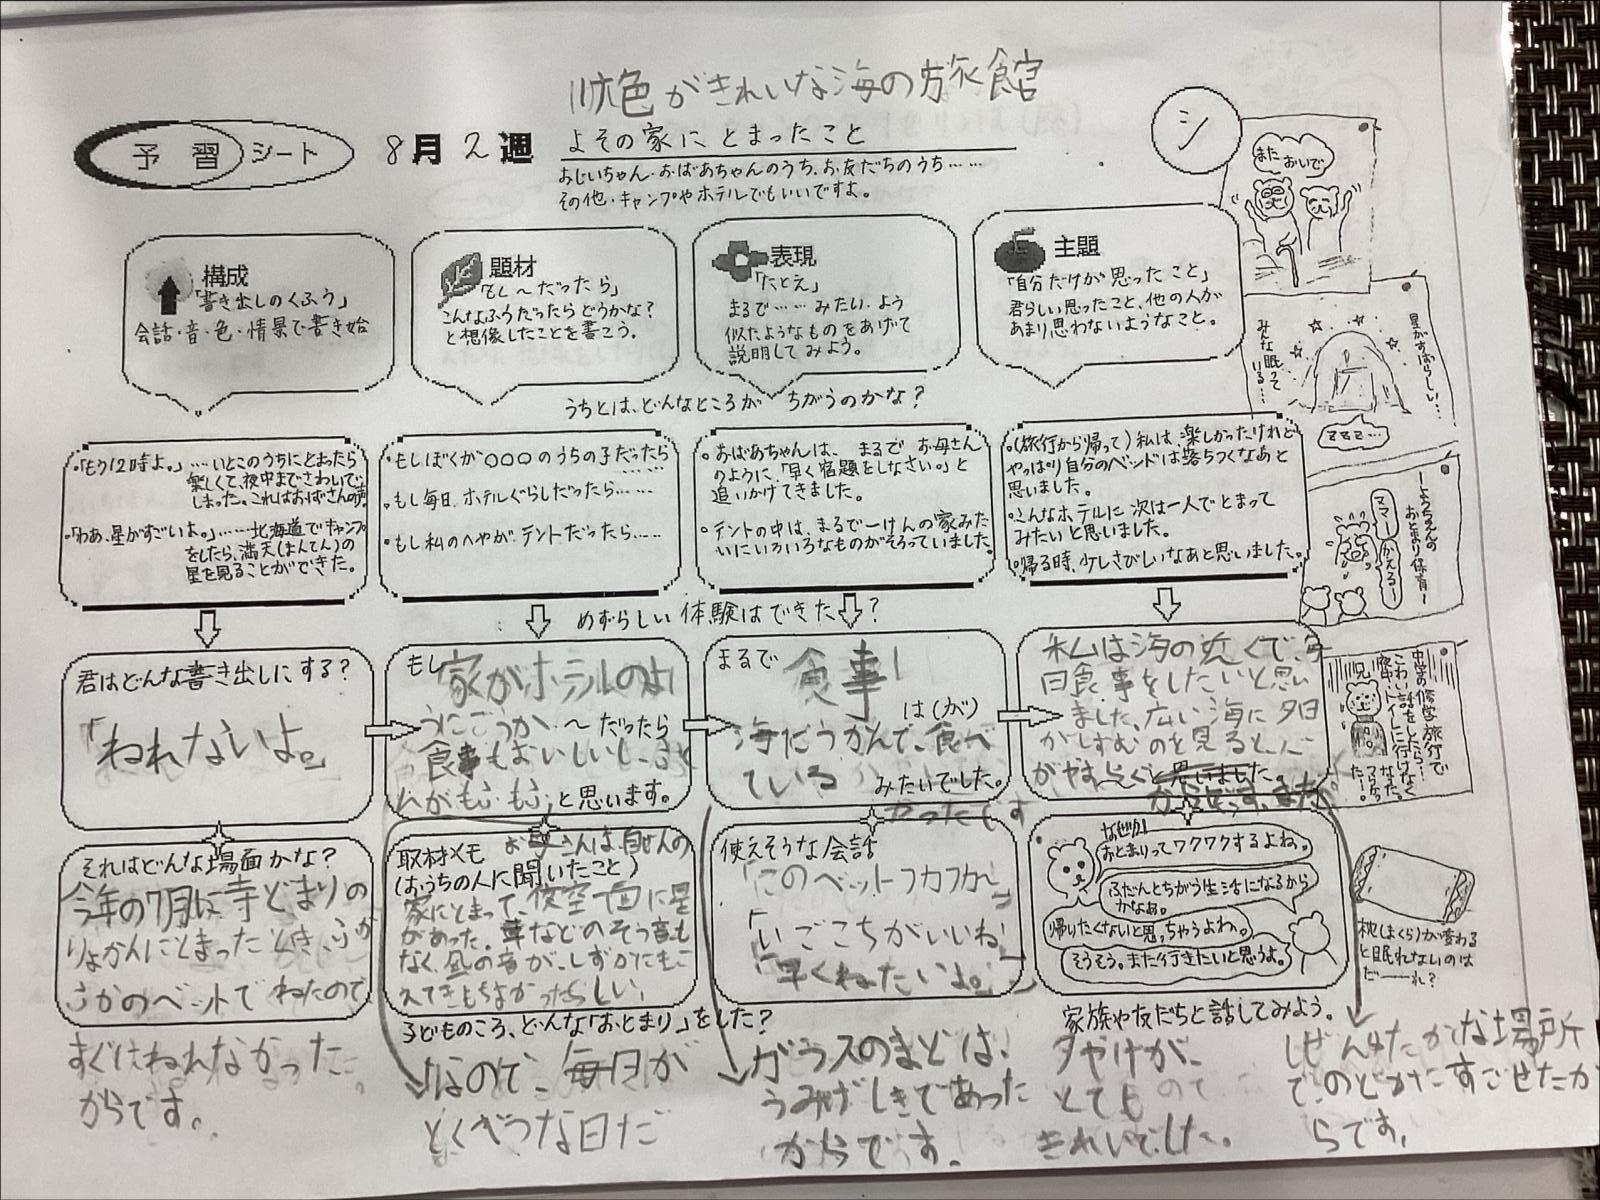 景色がきれいな海の旅館
予習シート
8月2週
よその家にとまったこと
おじいちゃん・おばあちゃんのうち、お友だちのうち……
その他・キャンプやホテルでもいいですよ。
シ
構成
「書き出しのくふう」
会話・音・色・情景で書き始
題材
「もし〜だったら」
こんなふうだったらどうかな?
と想像したことを書こう。
表現
「たとえ」
まるで……みたい・よう
似たようなものをあげて
説明してみよう。
主題
「自分だけが思ったこと」
君らしい思ったこと、他の人が
あまり思わないようなこと。
うちとは、どんなところが ちがうのかな?
・「もう12時よ。」…いとこのうちにとまったら
楽しくて、夜中までさわいで
しまった。これはおばさんの声
・「わあ、星がすごいよ。」……北海道でキャンプ
をしたら、満天(まんてん)の
星を見ることができた。
・もしぼくが〇〇〇のうちの子だったら
・もし毎日、ホテルぐらしだったら……
・もし私のへやが、テントだったら……
・おばあちゃんは、まるで お母さん
のように、「早く宿題をしなさい。」と
追いかけてきました。
・テントの中は、まるで一けんの家みた
いにいろいろなものがそろっていました。
・(旅行から帰って)私は、楽しかったけれど
やっぱり自分のベッドは落ちつくなあと
思いました。
・こんなホテルに 次は一人でとまって
みたいと思いました。
・帰る時、少しさびしいなあと思いました。
めずらしい体験はできた?
君はどんな書き出しにする?
「ねれないよ。」
もし
家がホテルのよ
うにごうか 〜だったら
食事もおいしいし、ふと
んがもふもふ と思います。
まるで
食事
は(が)
海にうかんで、食べ
ている
みたいでした。
私は海の近くで、毎
日食事をしたいと思い
ました。広い海に夕日
がしずむのを見ると、心
がやすらぐと思いました。
からです。また、
それはどんな場面かな?
今年の7月に寺どまりの
りょかんにとまったとき、ふか
ふかのベットでねたので
すぐはねれなかった
からです。
取材メモ
(おうちの人に聞いたこと)
お母さんは、自ぜんの
家にとまって、夜空一面に星
があった。車などのそう音も
なく、風の音が、しずかにきこ
えてきもちよかったらしい。
子どものころ、どんな「おとまり」をした?
なので、毎日が
とくべつな日だ
使えそうな会話
「このベットフカフカ〜」
「いごこちがいいね」
「早くねたいよ。」
ガラスのまどは、
うみげしきであった
からです。
なぜか
おとまりってワクワクするよね。
ふだんとちがう生活になるから
かなぁ。
帰りたくないと思っちゃうよねぇ。
そうそう。また行きたいと思うよ。
家族や友だちと話してみよう。
夕やけが、
とても
きれいでした。
しぜんゆたかな場所
で、のどかにすごせたか
らです。
またおいで
星がすばらしい…
みんな眠っている…
zzz…
ーようちえんの
おとまり保育ー
ママー
かえるー
中学の修学旅行で
こわい話をしたら…
夜中トイレに行けなく
なった。
枕(まくら)が変わる
と眠れないのは
だーーれ?